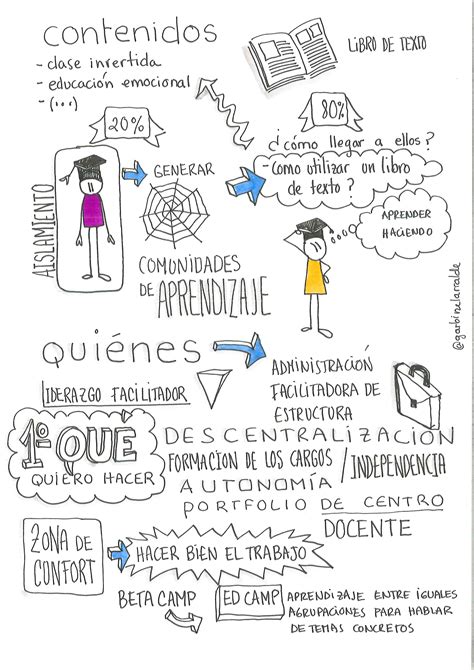 contenidos
- clase invertida
- educación emocional
- (...)
LIBRO DE TEXTO
20%
80%
¿cómo llegar a ellos?
- Como utilizar un libro
de texto?
GENERAR
AISLAMIENTO
APRENDER
HACIENDO
COMUNIDADES
DE APRENDIZAJE
@garbinelarralde
quiénes
ADMINISTRACIÓN
FACILITADORA DE
ESTRUCTURA
LIDERAZGO FACILITADOR
1º QUÉ
QUIERO HACER
DESCENTRALIZACIÓN
FORMACION DE LOS CARGOS / INDEPENDENCIA
AUTONOMÍA
PORTFOLIO DE CENTRO
DOCENTE
ZONA DE
CONFORT
HACER BIEN EL TRABAJO
BETA CAMP
ED CAMP
APRENDIZAJE ENTRE IGUALES
AGRUPACIONES PARA HABLAR
DE TEMAS CONCRETOS